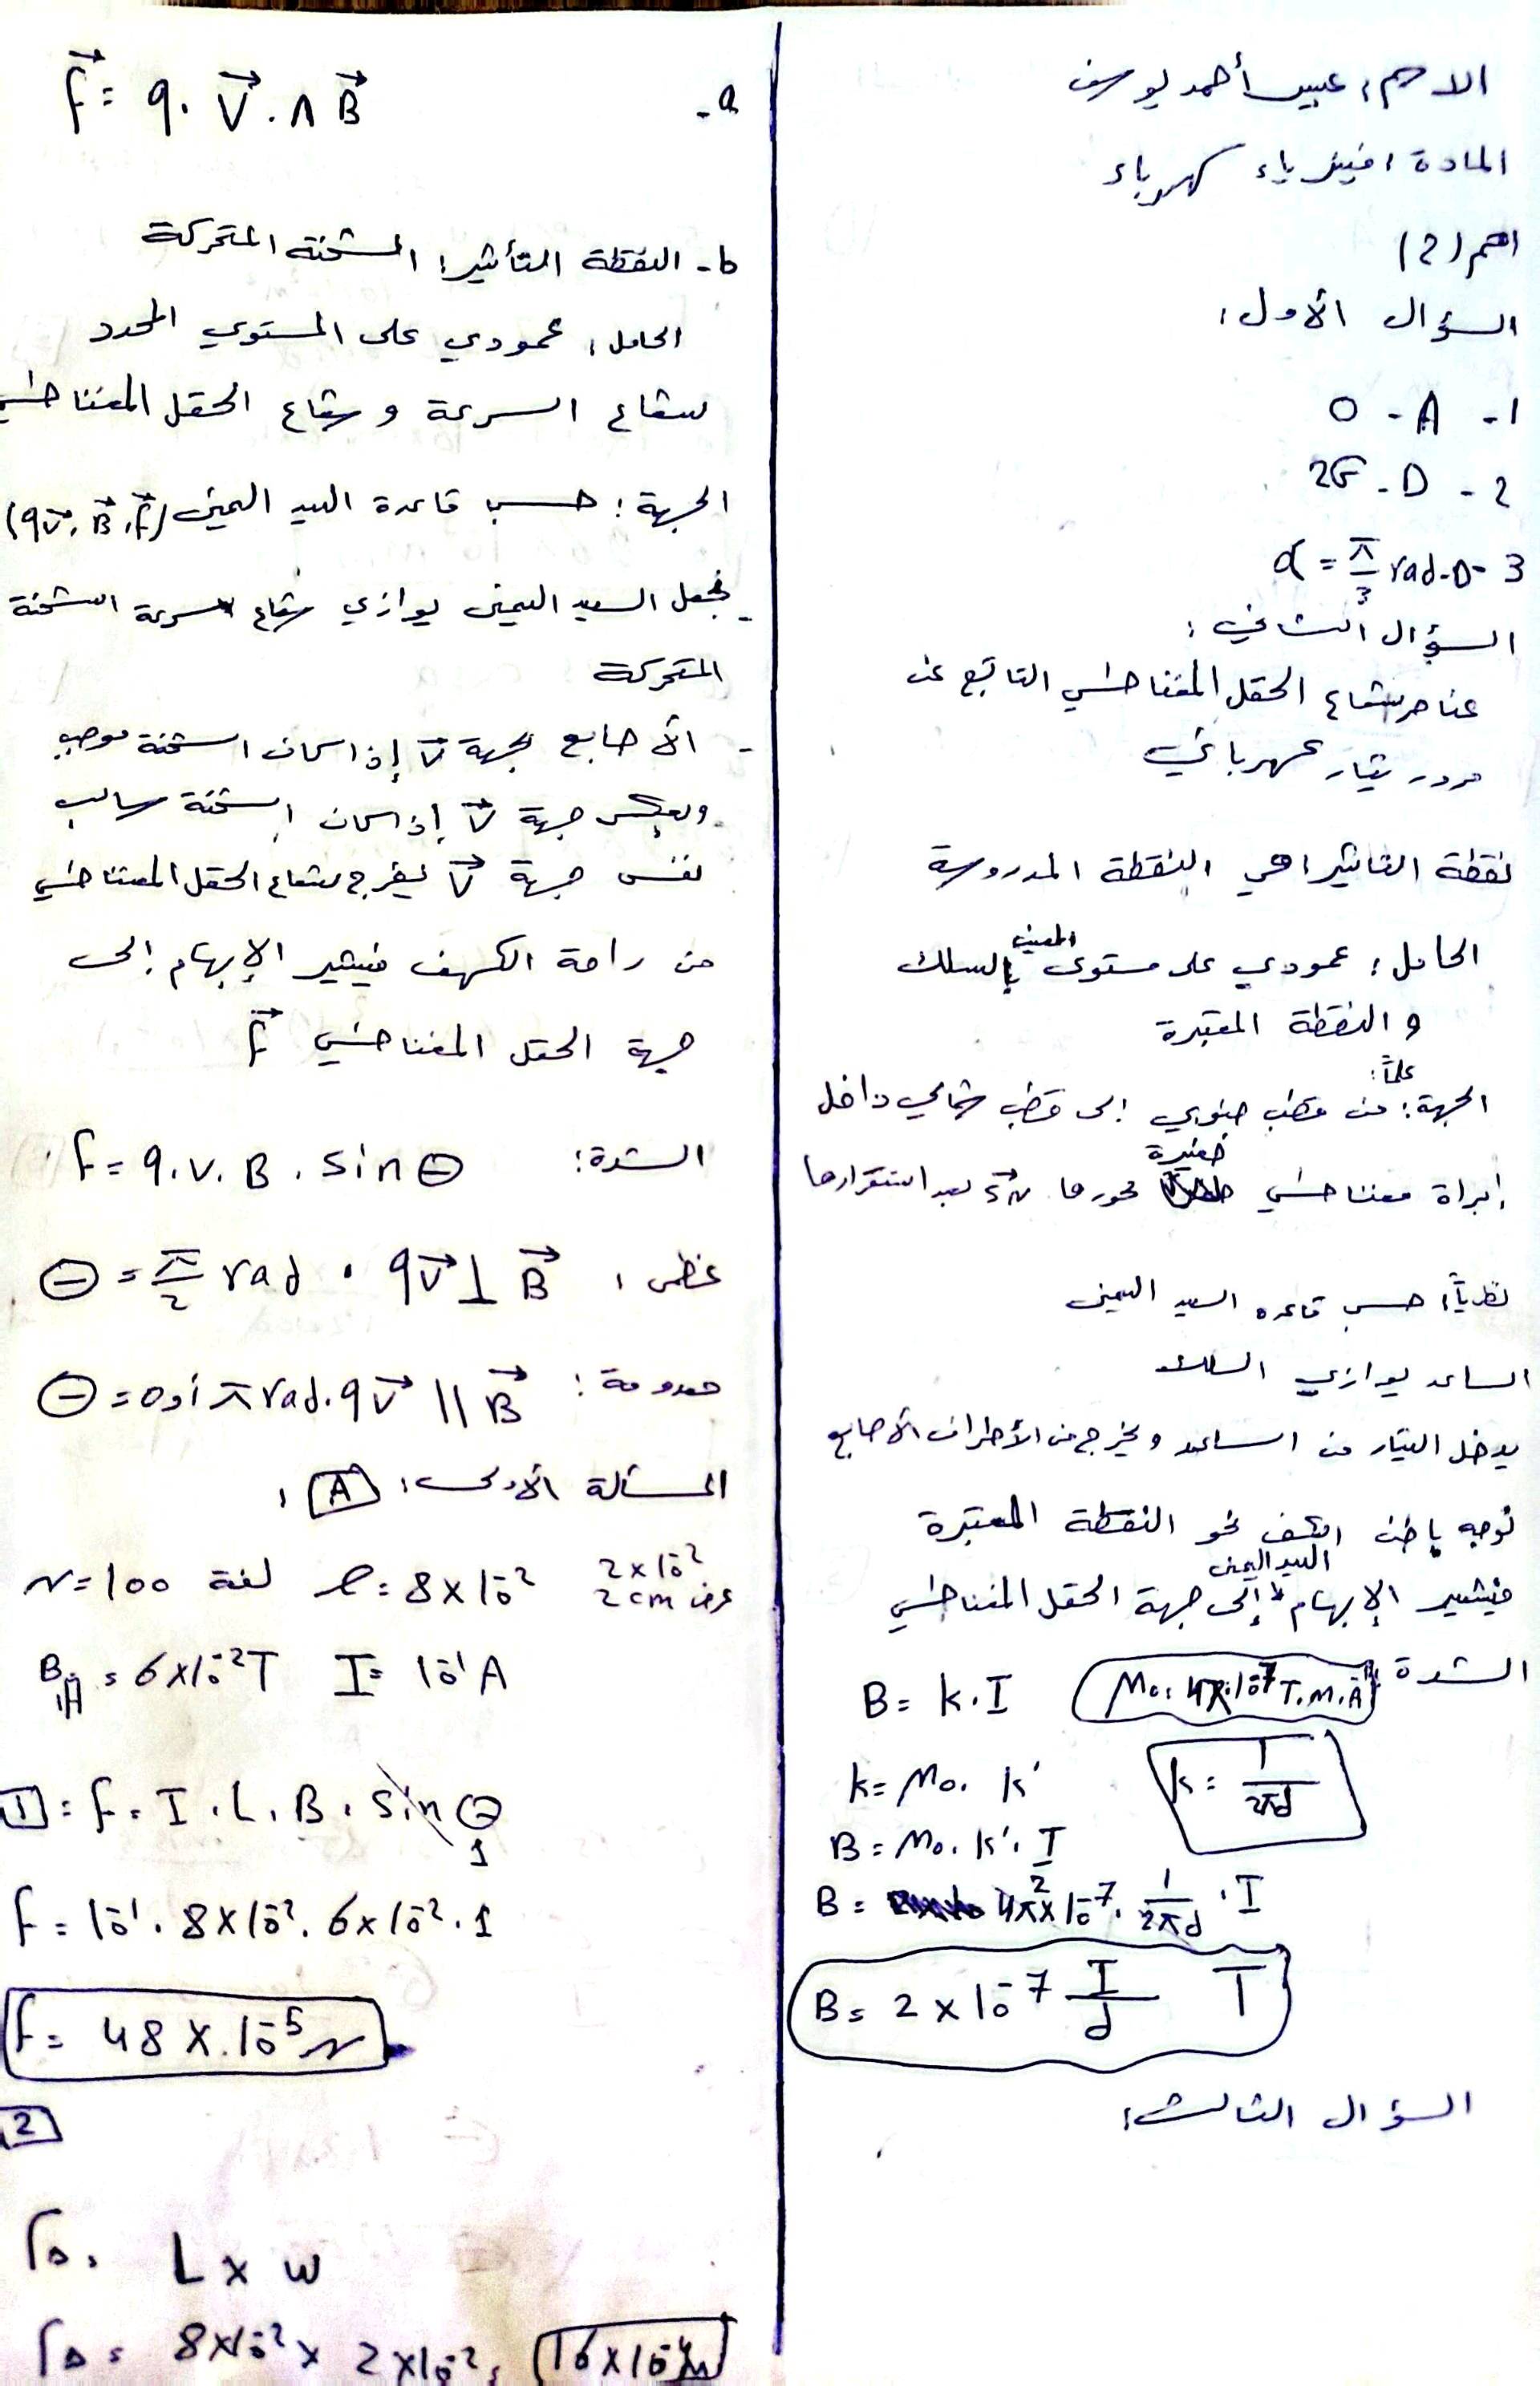 الاسم: عبيدة أحمد يوسف
المادة: فيزياء كهرباء
السؤال الأول:
1 - A - 0
2 - D - 2G
3 - D - α = π/3 rad
السؤال الثاني:
عناصر شعاع الحقل المغناطيسي الناتج عن
مرور تيار كهربائي
نقطة التأثير: هي النقطة المدروسة
الحامل: عمودي على مستوى المعين بالسلك
و النقطة المعتبرة
الجهة: عملياً: من قطب جنوبي إلى قطب شمالي داخل
إبراة مغناطيسي صغيرة محورها SN بعد استقرارها
نظرياً: حسب قاعده اليد اليمنى
الساعد يوازي السلك
يدخل التيار من الساعد ويخرج من الأطراف الأصابع
نوجه باطن الكف نحو النقطة المعتبرة
فيشير الإبهام اليد اليمنى إلى جهة الحقل المغناطيسي
الشدة: B = k . I    μ₀ = 4π.10⁻⁷ T.m.A⁻¹
k = μ₀ . k'    k = 1/2πd
B = μ₀ . k' . I
B = 4π×10⁻⁷ . 1/2πd . I
B = 2 × 10⁻⁷ I/d T
السؤال الثالث:
a - f⃗ = q . V⃗ . Λ B⃗
b - النقطة التأثير: الشحنة المتحركة
الحامل: عمودي على المستوي المحدد
بشعاع السرعة و شعاع الحقل المغناطيسي
الجهة: حسب قاعدة اليد اليمنى (qv⃗, B⃗, f⃗)
- نجعل اليد اليمنى يوازي شعاع سرعة الشحنة
المتحركة
- الأصابع بجهة v⃗ إذا كانت الشحنة موجب
وبعكس جهة v⃗ إذا كانت الشحنة سالب
نفس جهة v⃗ يخرج شعاع الحقل المغناطيسي
من راحة الكهف فيشير الإبهام إلى
جهة الحقل المغناطيسي f⃗
الشدة: f = q . v . B . sin θ
عظمى: θ = π/2 rad . qv⃗ ⊥ B⃗
معدومة: θ = 0 أو π rad . qv⃗ || B⃗
المسألة الأولى: A :
عرض 2cm 2×10⁻² ℓ = 8×10⁻² لفة N = 100
B = 6×10⁻² T    I = 10⁻¹ A
1 : f = I . L . B . sin θ 1
f = 10⁻¹ . 8×10⁻² . 6×10⁻² . 1
f = 48 × 10⁻⁵ N
2
L × w
8×10⁻² × 2×10⁻² = 16×10⁻⁴ m